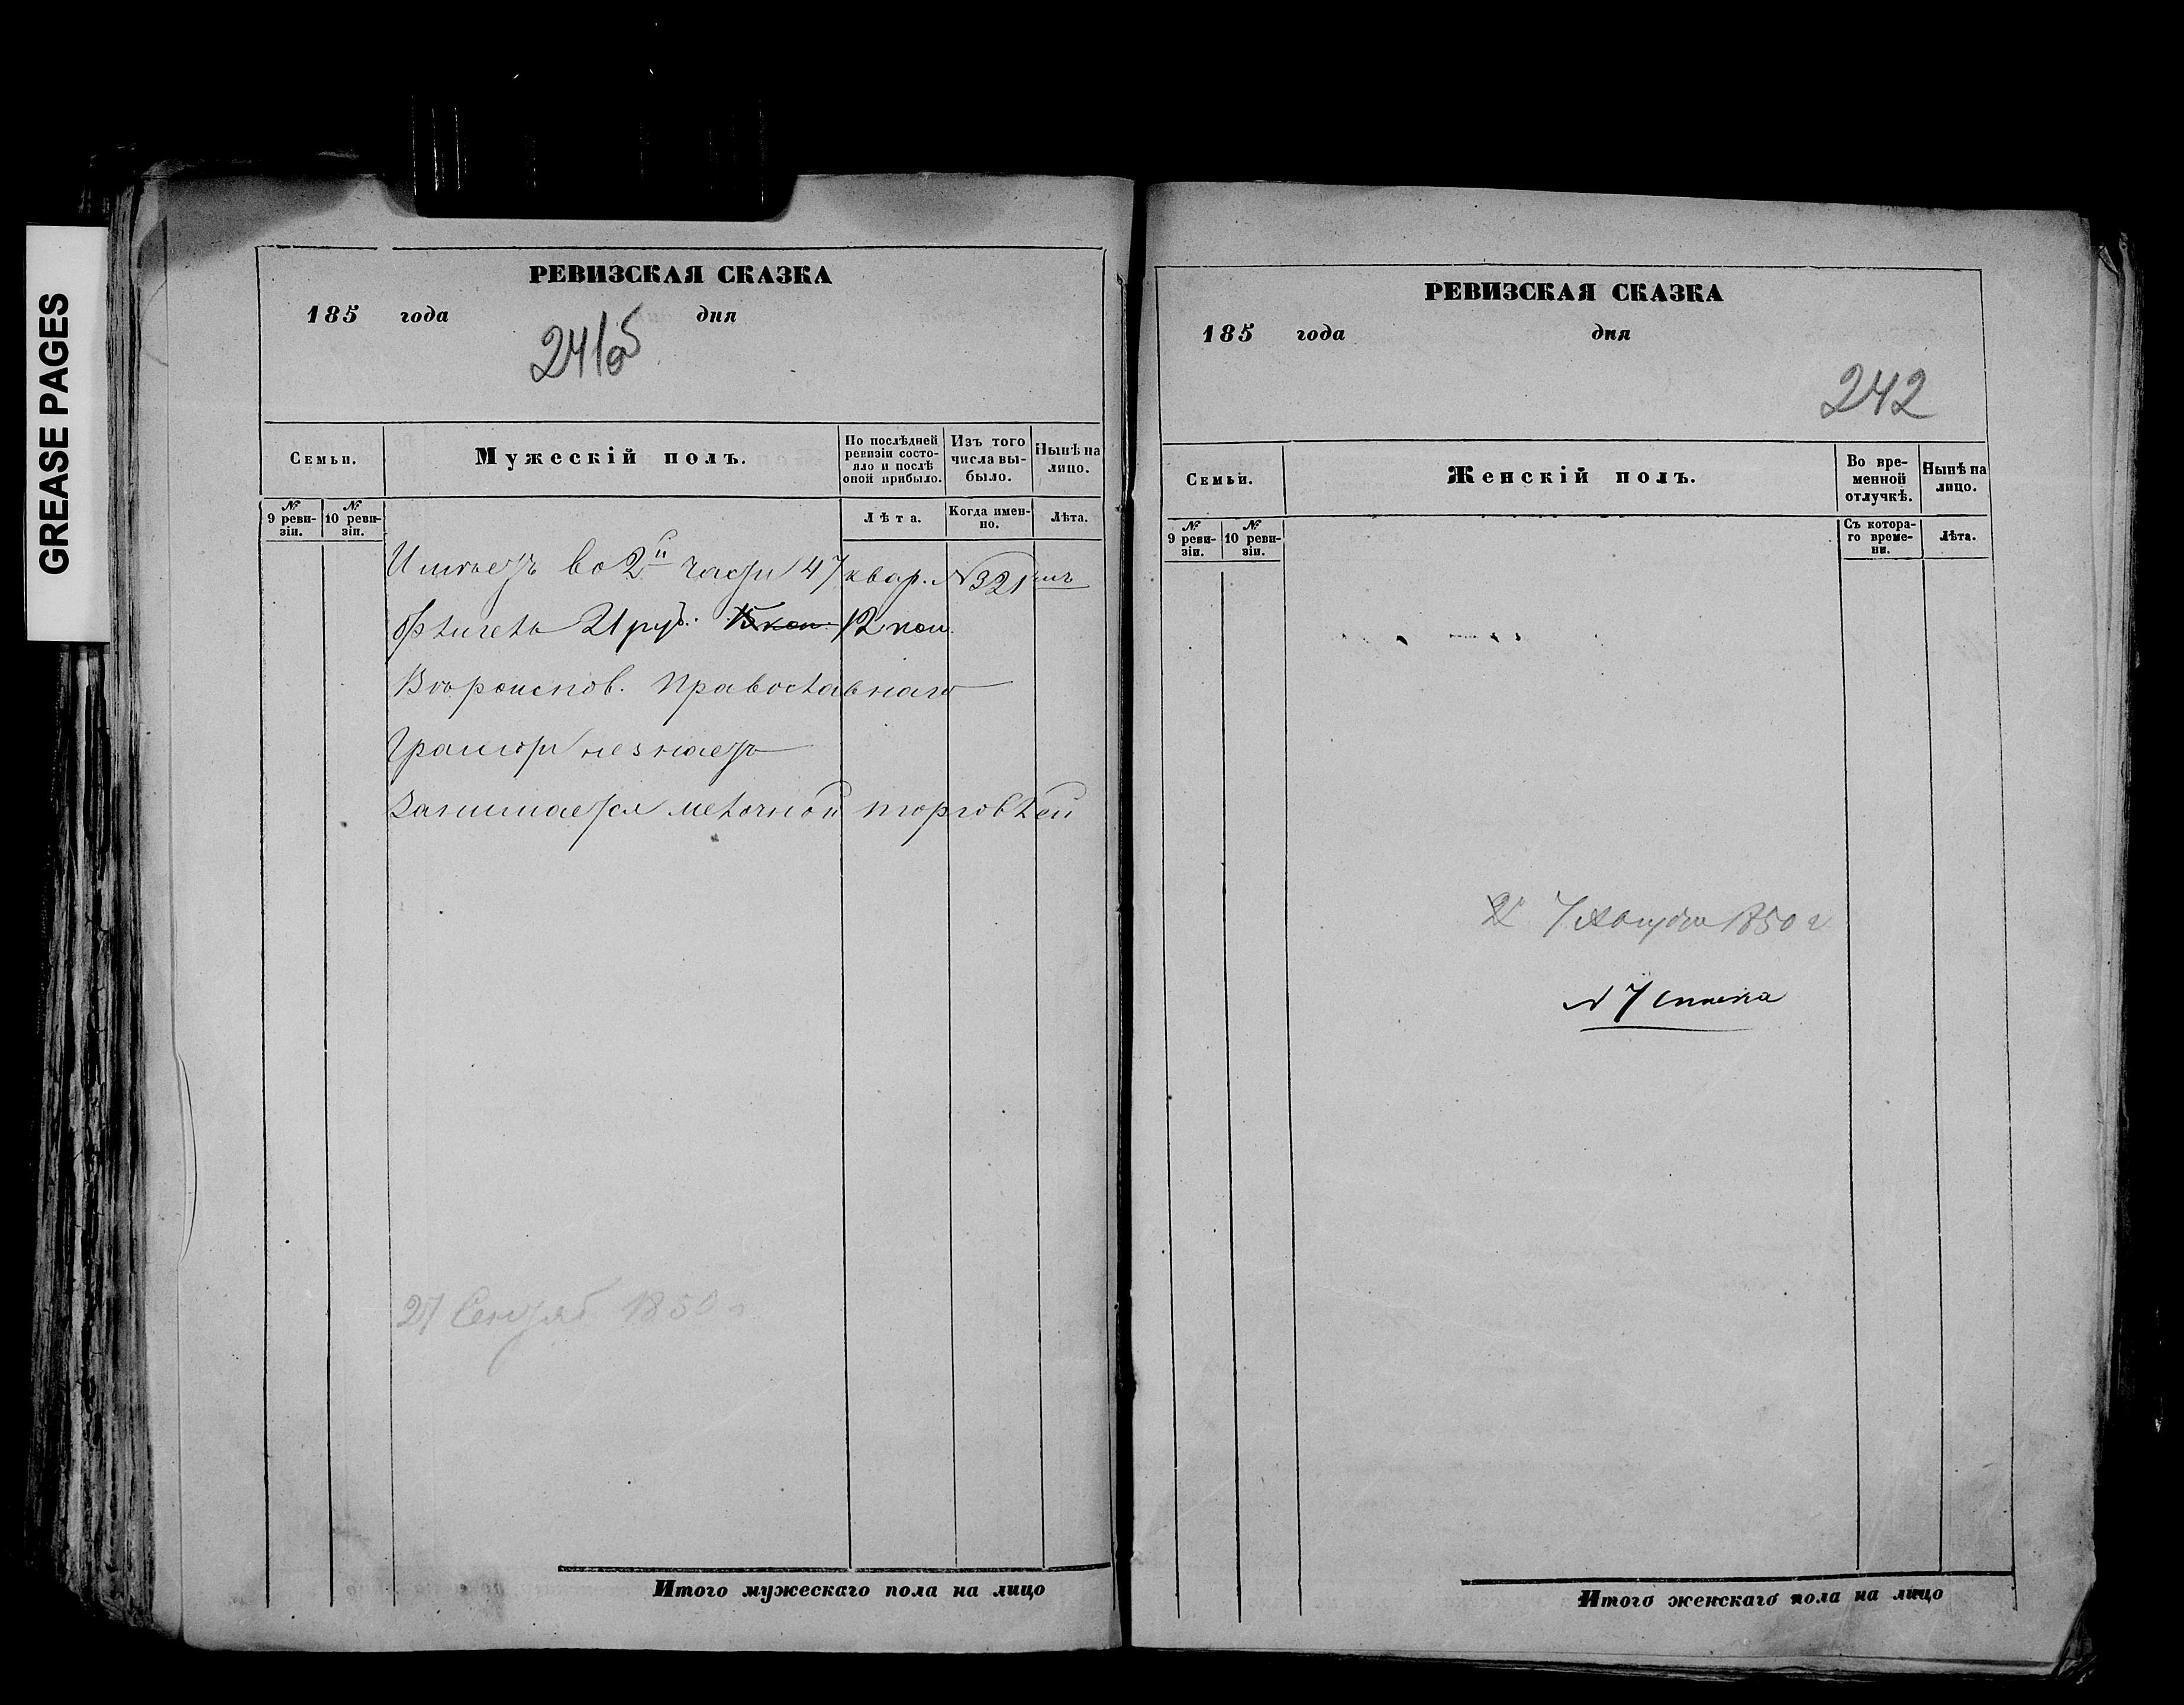 GREASE PAGES
РЕВИЗСКАЯ СКАЗКА
185 года дня
241 об
Семьи.
Мужескій полъ.
По послѣдней ревизіи состояло и послѣ оной прибыло.
Изъ того числа выбыло.
Нынѣ на лицо.
№ 9 ревизіи.
№ 10 ревизіи.
Лѣта.
Когда именно.
Лѣта.
Имѣетъ во 2й части 47 квар. №321
21 руб. 15 коп. 12 коп.
Вѣроиспов. Православнаго
Грамоти незнаетъ
Занимается мелочной торговлей
27 Сентяб 1850 г
Итого мужескаго пола на лицо
РЕВИЗСКАЯ СКАЗКА
185 года дня
242
Семьи.
Женскій полъ.
Во временной отлучкѣ.
Нынѣ на лицо.
№ 9 ревизіи.
№ 10 ревизіи.
Съ котораго времени.
Лѣта.
7 Августа 1850 г
№ 7 списка
Итого женскаго пола на лицо